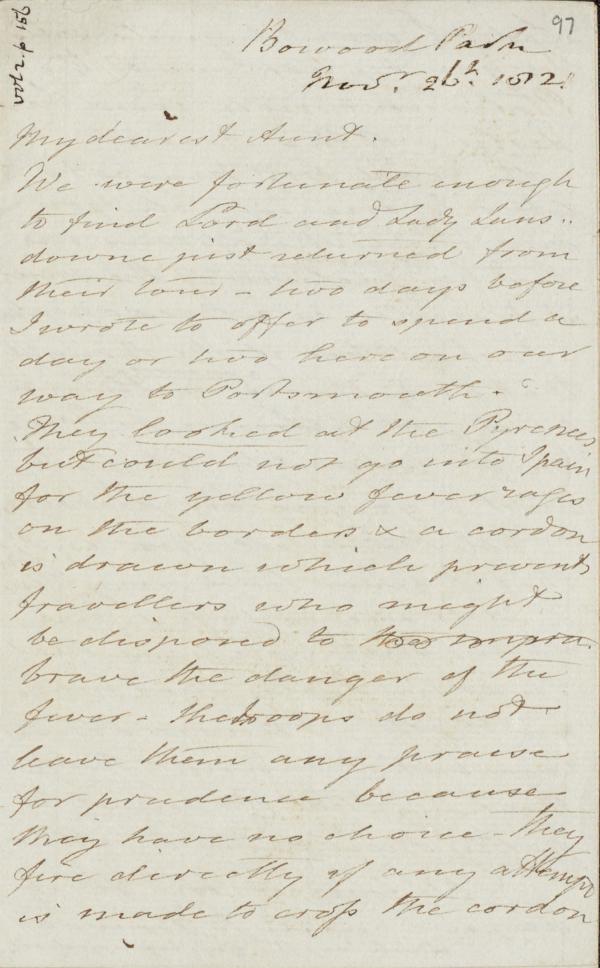 97
vol 2. p 156
Bowood Park
Novr. 26th. 1821
My dearest Aunt.
We were fortunate enough
to find Lord and Lady Lans..
downe just returned from
their tour - two days before
I wrote to offer to spend a
day or two here on our
way to Portsmouth.
They looked at the Pyrenees
but could not go into Spain
for the yellow fever rages
on the borders & a cordon
is drawn which prevents
travellers who might
be disposed to
brave the danger of the
fever - the troops do not
leave them any praise
for prudence because
they have no choice - They
fire directly if any attempt
is made to cross the cordon